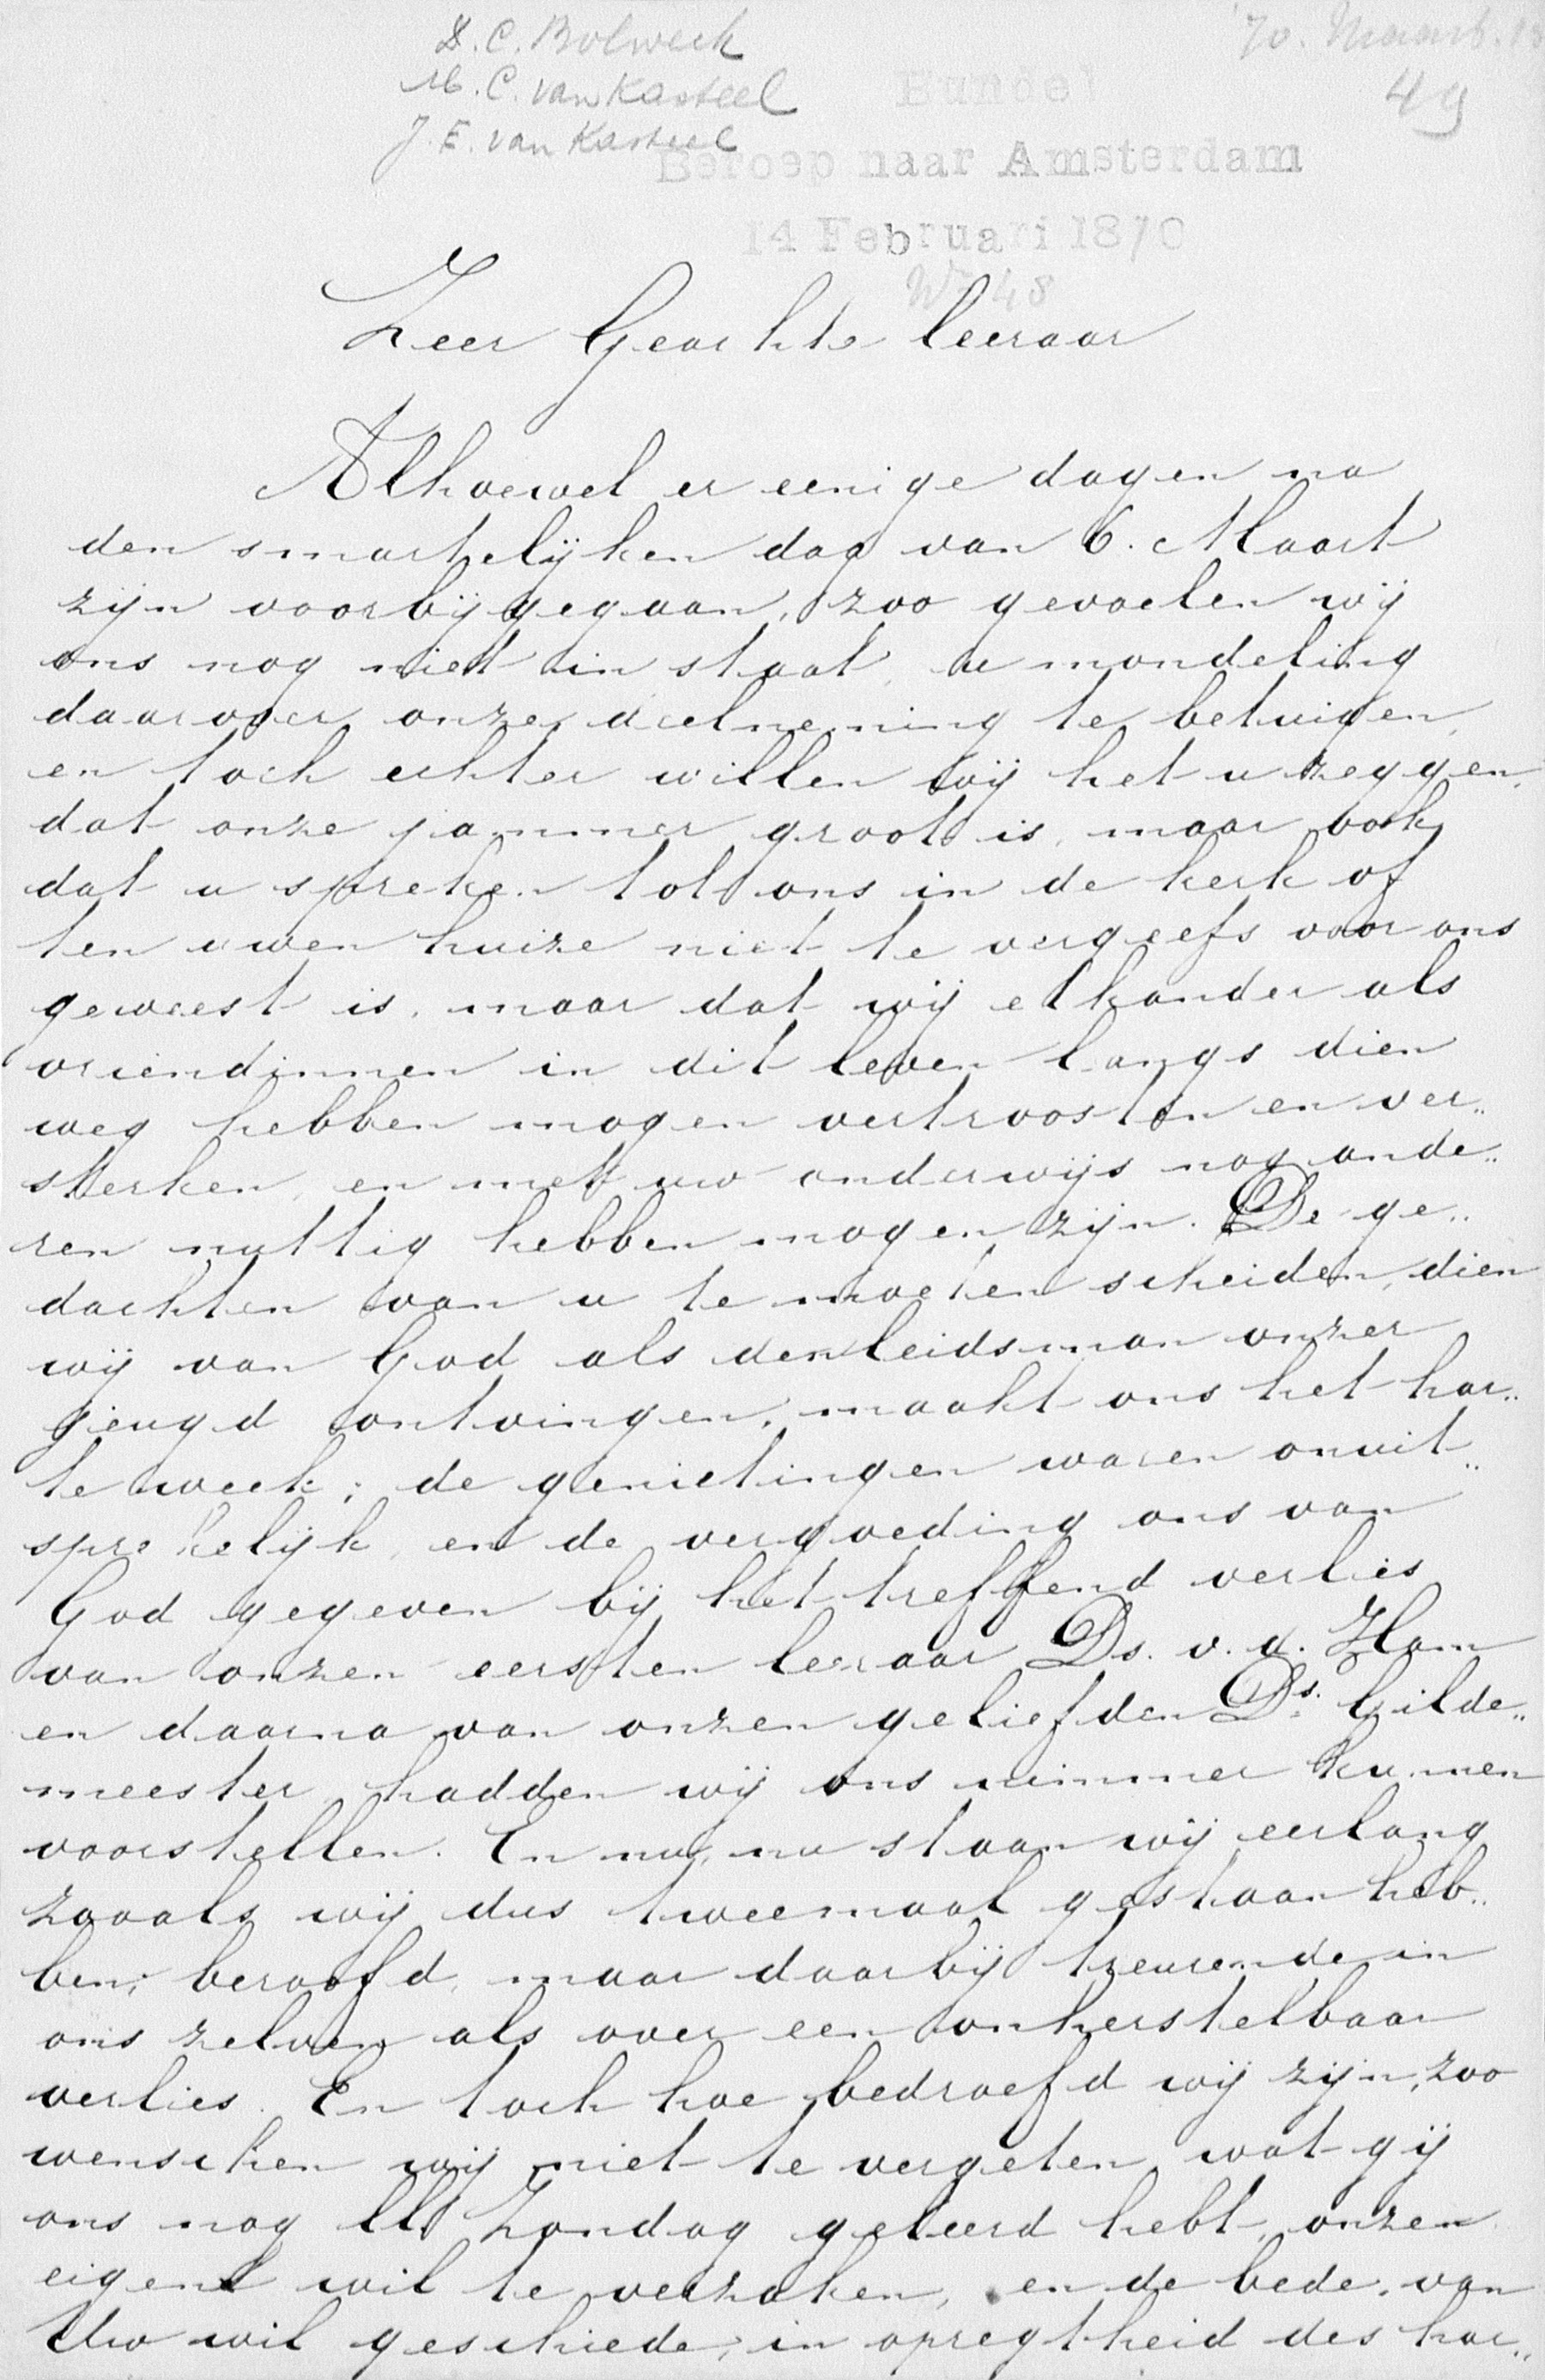 D. C. Bolwerk
M. C. van Kasteel
J. E. van Kasteel
'70. Maart.
49
Bundel
Beroep naar Amsterdam
14 Februari 1870
No 48
Zeer Geachte leeraar
Alhoewel er eenige dagen na
den smartelijken dag van 6. Maart
zijn voorbijgegaan, zoo gevoelen wij
ons nog niet in staat, u mondeling
daarover onze deelneming te betuigen,
en toch echter willen wij het u zeggen,
dat onze jammer groot is, maar ook
dat u spreken tot ons in de kerk of
ten uwen huize niet te vergeefs voor ons
geweest is, maar dat wij elkander als
vriendinnen in dit leven langs dien
weg hebben mogen vertroosten en ver„
sterken, en met uw onderwijs nog ande„
ren nuttig hebben mogen zijn. De ge„
dachten van u te moeten scheiden, dien
wij van God als den leidsman onzer
jeugd ontvingen, maakt ons het har„
te week; de genietingen waren onuit„
sprekelijk, en de vergoeding ons van
God gegeven bij het treffend verlies
van onzen eersten leeraar Ds. v. d. Ham
en daarna van onzen geliefden Ds. Gilde„
meester hadden wij ons nimmer kunnen
voorstellen. En nu, nu staan wij eerlang
zooals wij dus tweemaal gestaan heb„
ben; beroofd, maar daarbij treurende in
ons zelven als over een onherstelbaar
verlies. En toch hoe bedroefd wij zijn, zoo
wenschen wij niet te vergeten, wat gij
ons nog ll Zondag geleerd hebt, onzen
eigen wil te verzaken, en de bede, van
Uw wil geschiede, in opregtheid des har„